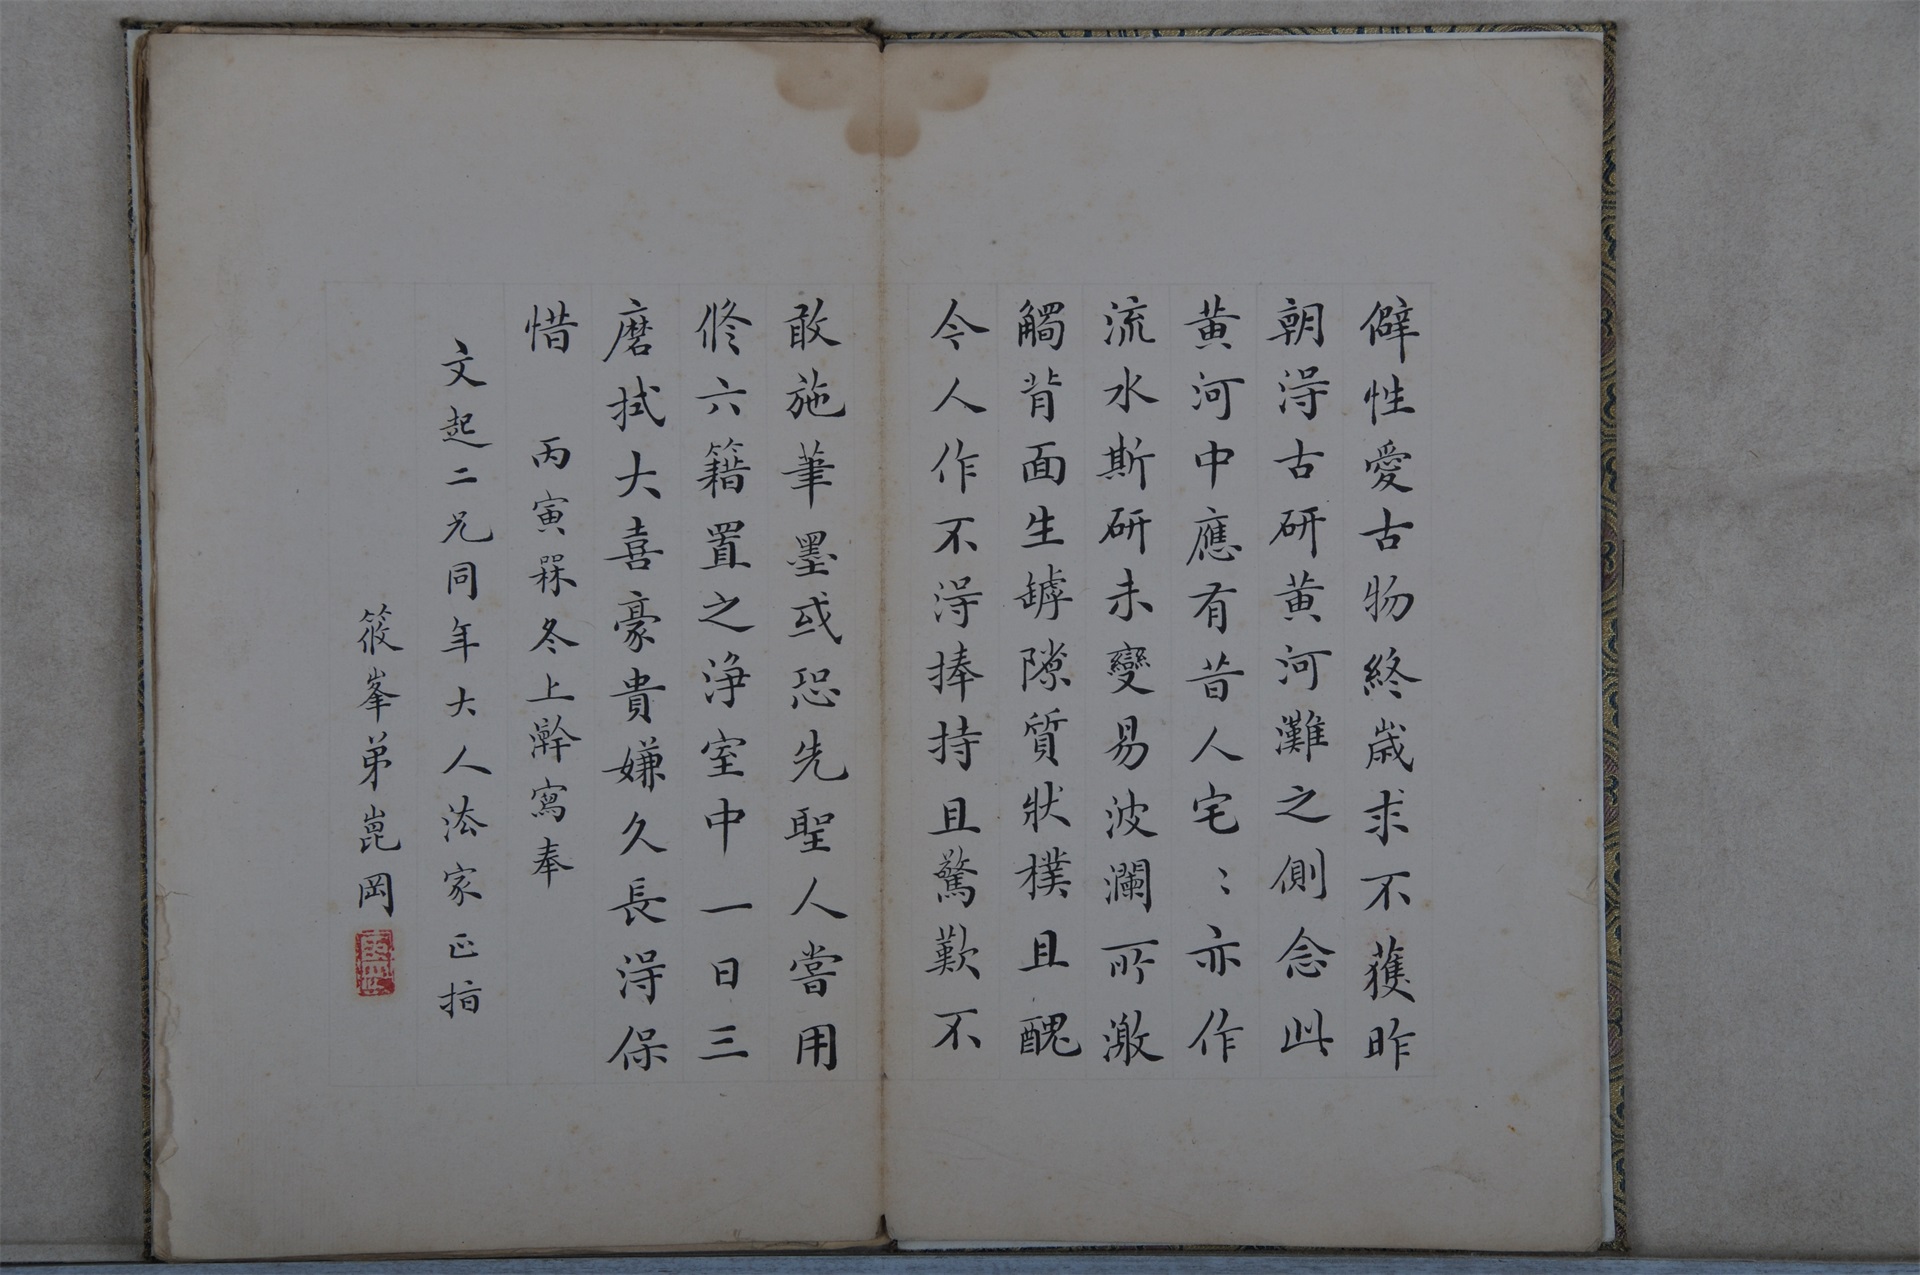 僻性愛古物終歲求不獲昨
朝淂古研黄河灘之側念此
黄河中應有昔人宅〻亦作
流水斯研未變易波瀾所激
觸背面生罅隙質狀樸且醜
今人作不淂捧持且驚歎不
敢施筆墨或恐先聖人嘗用
修六籍置之淨室中一日三
磨拭大喜豪貴嫌久長淂保
惜 丙寅冬上澣寫奉
文起二兄同年大人法家正指
筱峯弟崑岡